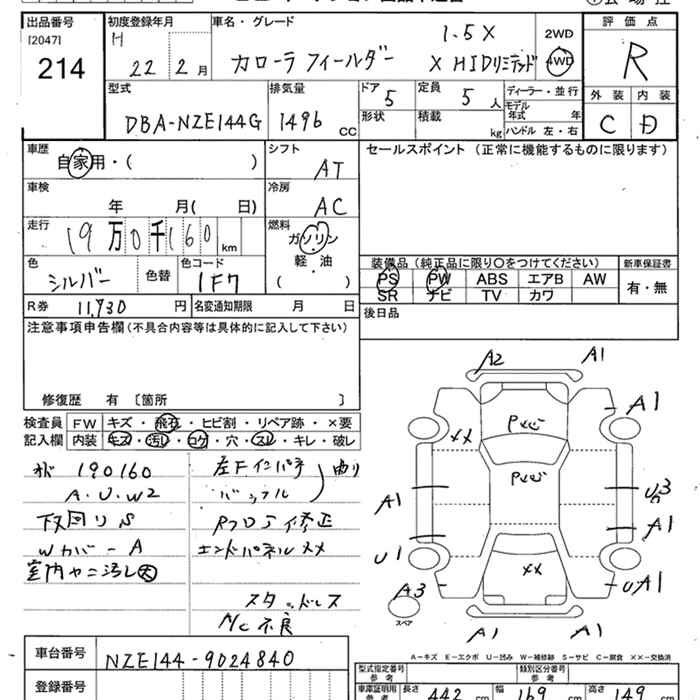 出品番号
[2047]
214
初度登録年月
H
22 2月
車名・グレード
1.5X
カローラ フィールダー X HIDリミテッド
2WD
4WD
評価点
R
外装 内装
C D
型式
DBA-NZE144G
排気量
1496 cc
ドア
5
定員
5 人
形状
積載
kg
ディーラー・並行
モデル年式 年式
ハンドル 左・右
車歴
自家用・( )
シフト
AT
車検
年 月( 日)
冷房
AC
走行
19万0千160 km
燃料
ガソリン
軽・油
( )
色
シルバー
色替
色コード
1F7
R券
11,930 円
名変通知期限 月 日
セールスポイント (正常に機能するものに限ります)
装備品(純正品に限り○をつけてください)
PS PW ABS エアB AW
SR ナビ TV カワ
新車保証書
有・無
後日品
注意事項申告欄(不具合内容等は具体的に記入して下さい)
修復歴 有 〔箇所 〕
検査員記入欄
FW キズ・飛石・ヒビ割・リペア跡・×要
内装 キズ・汚レ・コゲ・穴・スレ・キレ・破レ
190160
A.U.W2
下回りS
Wカバー A
室内ヤニ汚レ大
左Fインパネ
曲り
修正
エンドパネル××
スタッドレス
N/C不良
A2 A1
A1
××
Pメンイ
A1
U3
A1
U1
××
UA1
A3
スペア
A1 A1
A-キズ E-エクボ U-凹み W-補修跡 S-サビ C-腐食 ××-交換済
車台番号
NZE144-9024840
登録番号
型式指定番号 参考
類別区分番号 参考
車庫証明用 参考
長さ 442 cm
幅 169 cm
高さ 149 cm